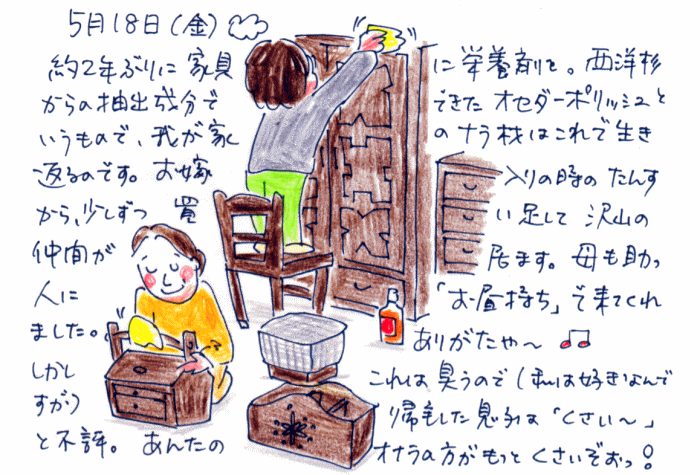 5月18日(金)
約2年ぶりに 家具に栄養剤を。西洋杉
からの抽出成分で できた オセダーポリッシュと
いうもので、我が家のナラ材はこれで生き
返るのです。お嫁入りの時の たんす
から、少しずつ 買い足して 沢山の
仲間が居ます。母も助っ
人に「お昼持ち」で来てくれ
ました。ありがたや〜♫
しかし これは 臭うので(私は好きなんで
すが)帰宅した息子は「くさい〜」
と不評。あんたの オナラの方がもっとくさいぞおっ!